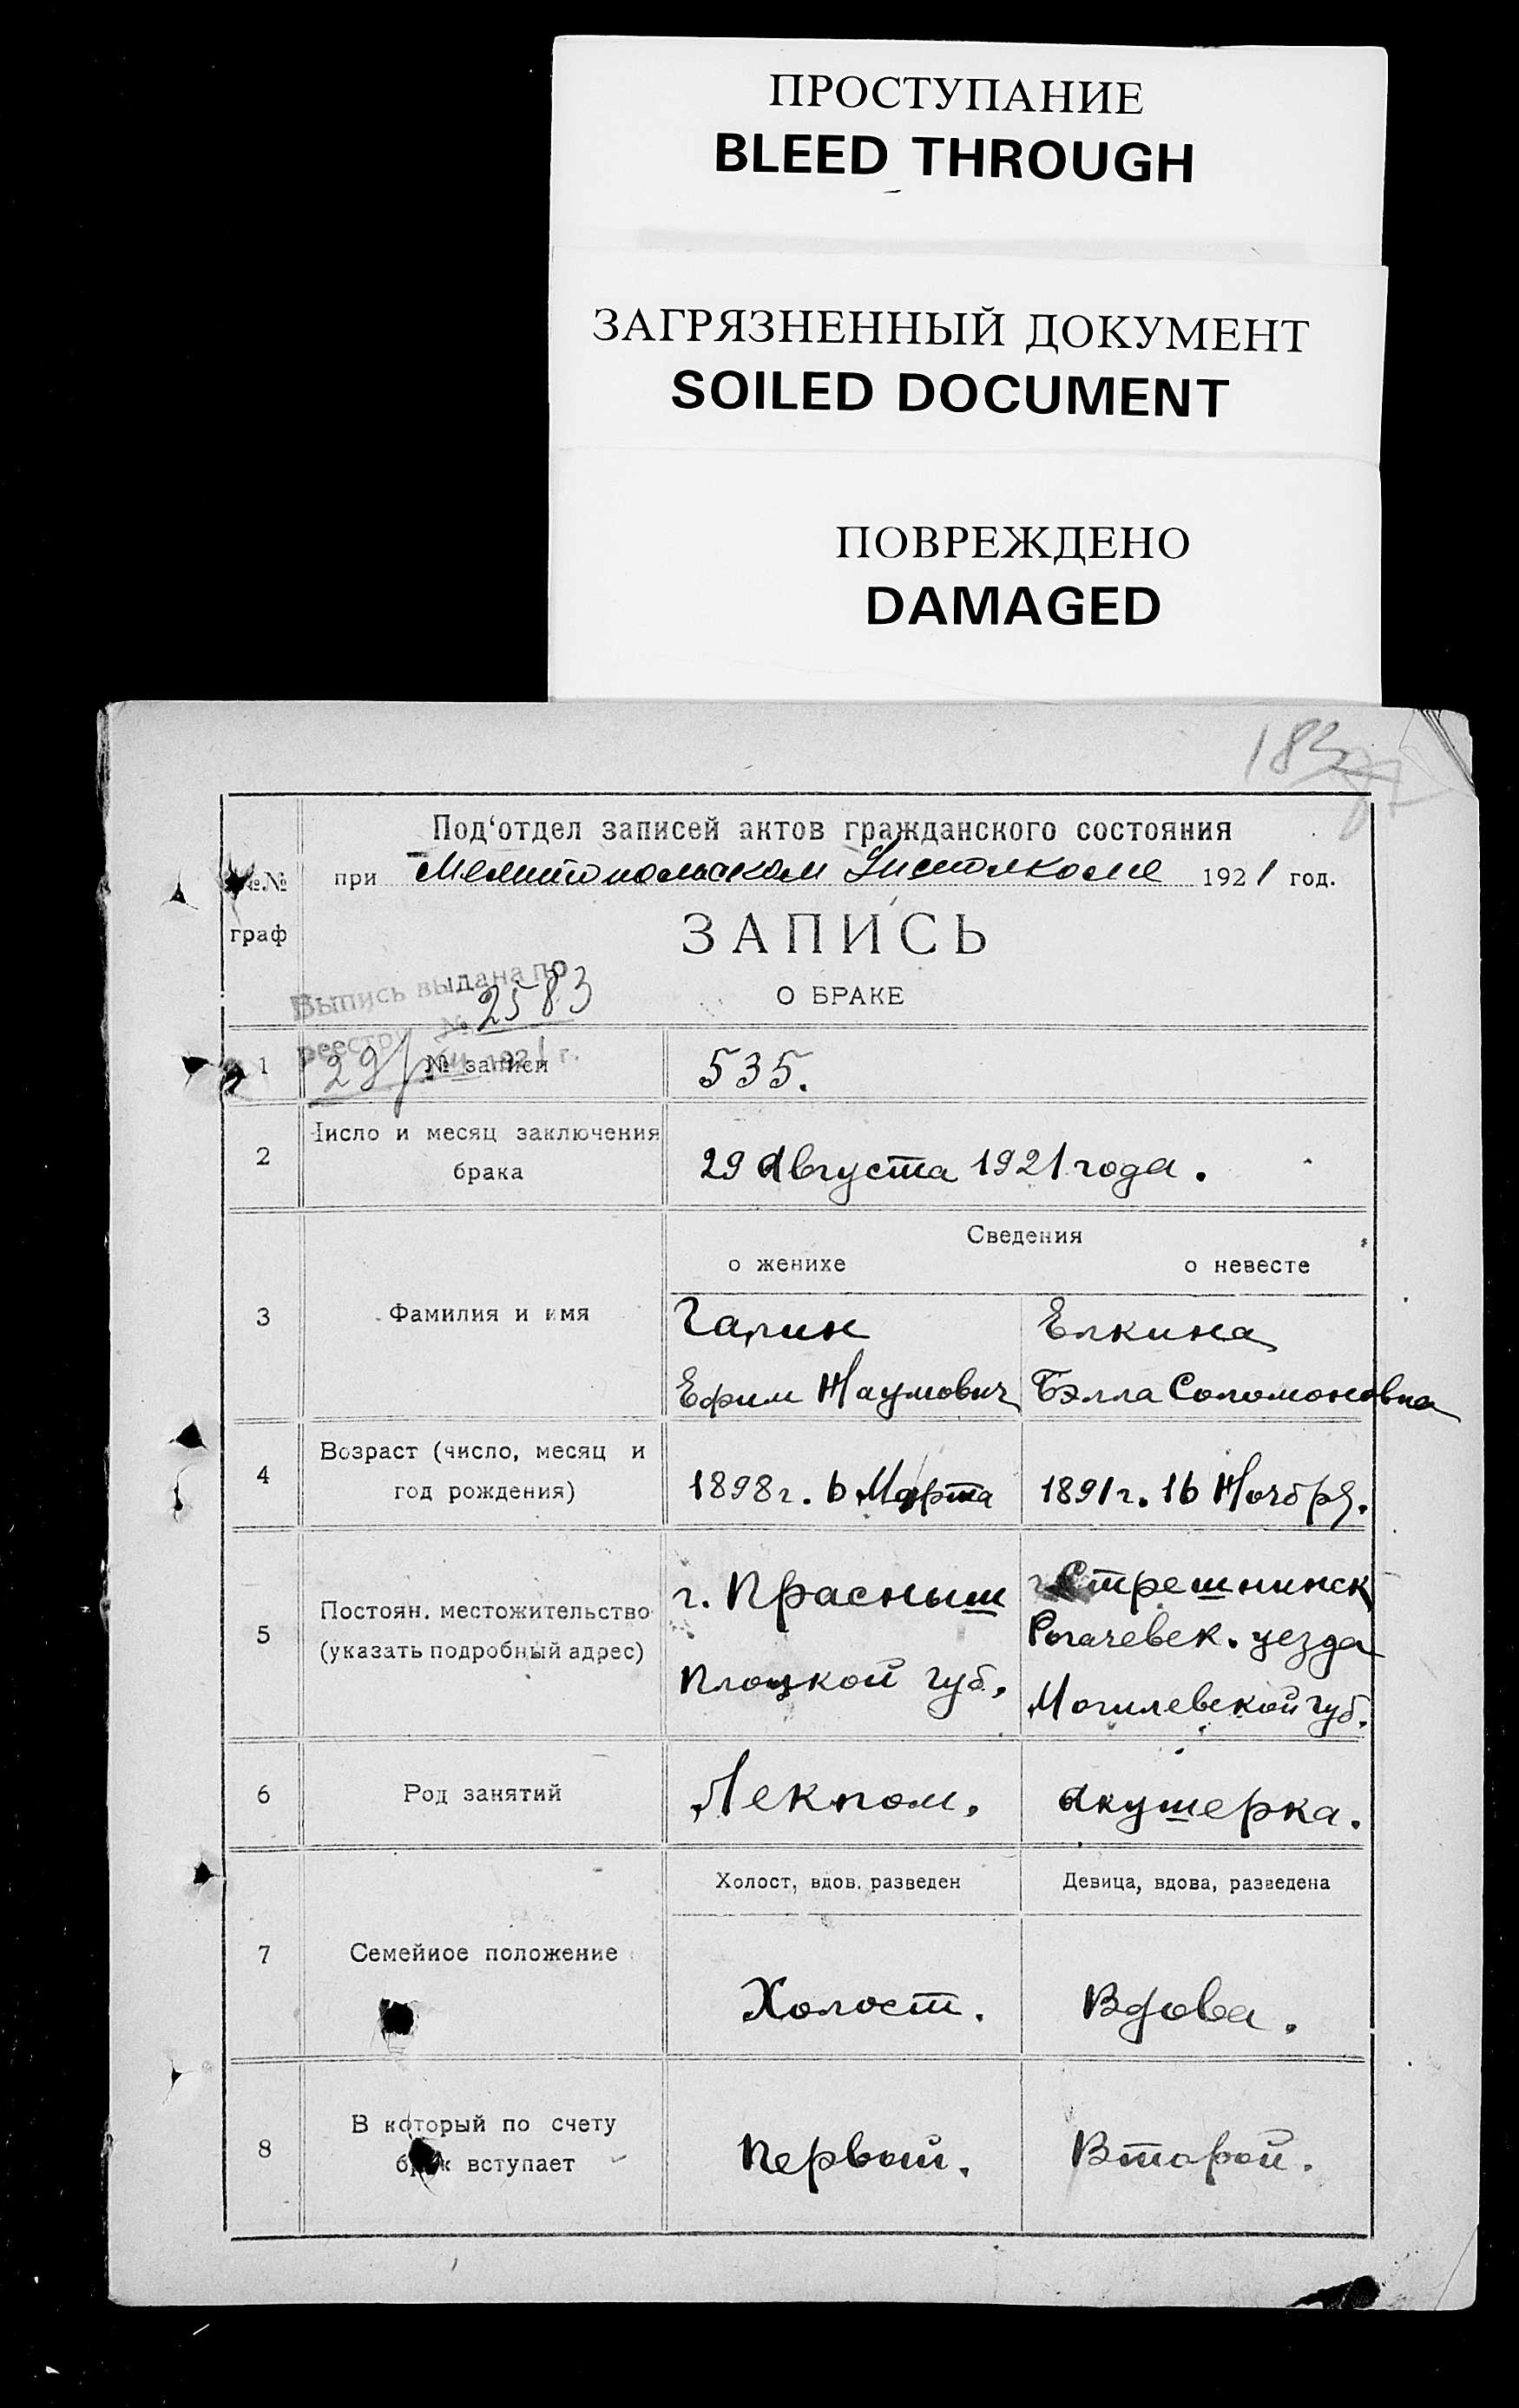 ПРОСТУПАНИЕ
BLEED THROUGH
ЗАГРЯЗНЕННЫЙ ДОКУМЕНТ
SOILED DOCUMENT
ПОВРЕЖДЕНО
DAMAGED
183
Под'отдел записей актов гражданского состояния
№№ при Мелитопольском Исполкоме 1921 год.
граф
ЗАПИСЬ
О БРАКЕ
Выпись выдана по
реестру № 2583
29 1921 г.
1 № записи 535.
2 Число и месяц заключения
брака 29 Августа 1921 года.
Сведения
о женихе о невесте
3 Фамилия и имя Галин Елкина
Ефим Наумович Бэлла Соломоновна
4 Возраст (число, месяц и
год рождения) 1898 г. 6 Марта 1891 г. 16 Ноября.
5 Постоян. местожительство
(указать подробный адрес)
г. Прасныш
Плоцкой губ.
г. Стрешнинск
Рогачевск. уезда
Могилевской губ.
6 Род занятий Лекпом. Акушерка.
Холост, вдов. разведен Девица, вдова, разведена
7 Семейное положение Холост. Вдова.
8 В который по счету
брак вступает Первый. Второй.